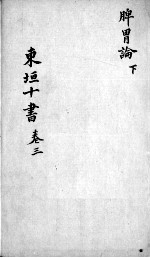 脾胃論 下
東垣十書 卷三